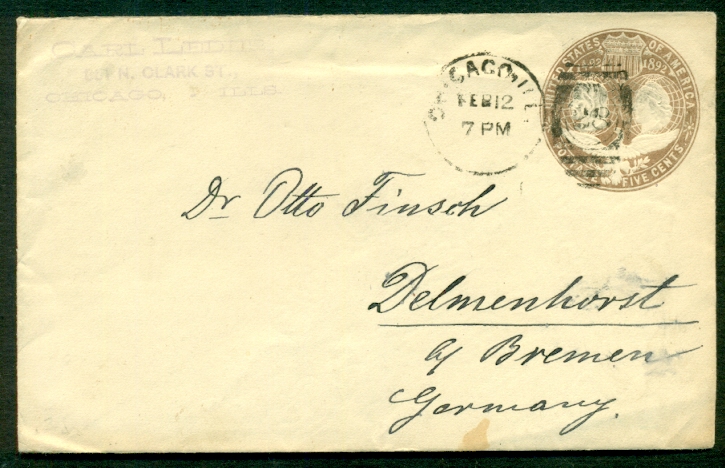 CARL
N. CLARK ST.,
CHICAGO, ILLS.
CHICAGO, ILL.
FEB 12
7 PM
UNITED STATES OF AMERICA
1492 1892
POSTAGE FIVE CENTS
28
Dr Otto Finsch
Delmenhorst
a/ Bremen
Germany.